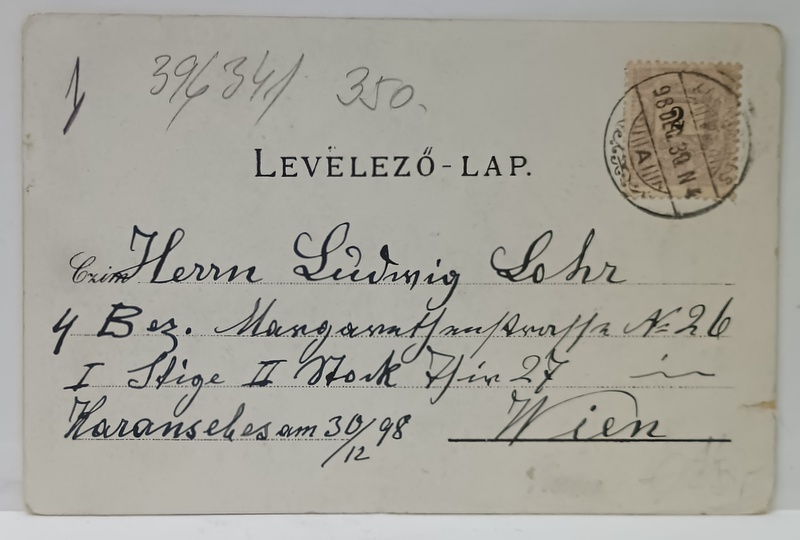 39/34/ 350.
LEVELEZŐ-LAP.
98 DEC. 30. N 4
A
Czim Herrn Ludwig Lohr
4 Bez. Margarethenstrasse № 26
I Stige II Stock Thür 27 in
Karansebes am 30/12 98 Wien